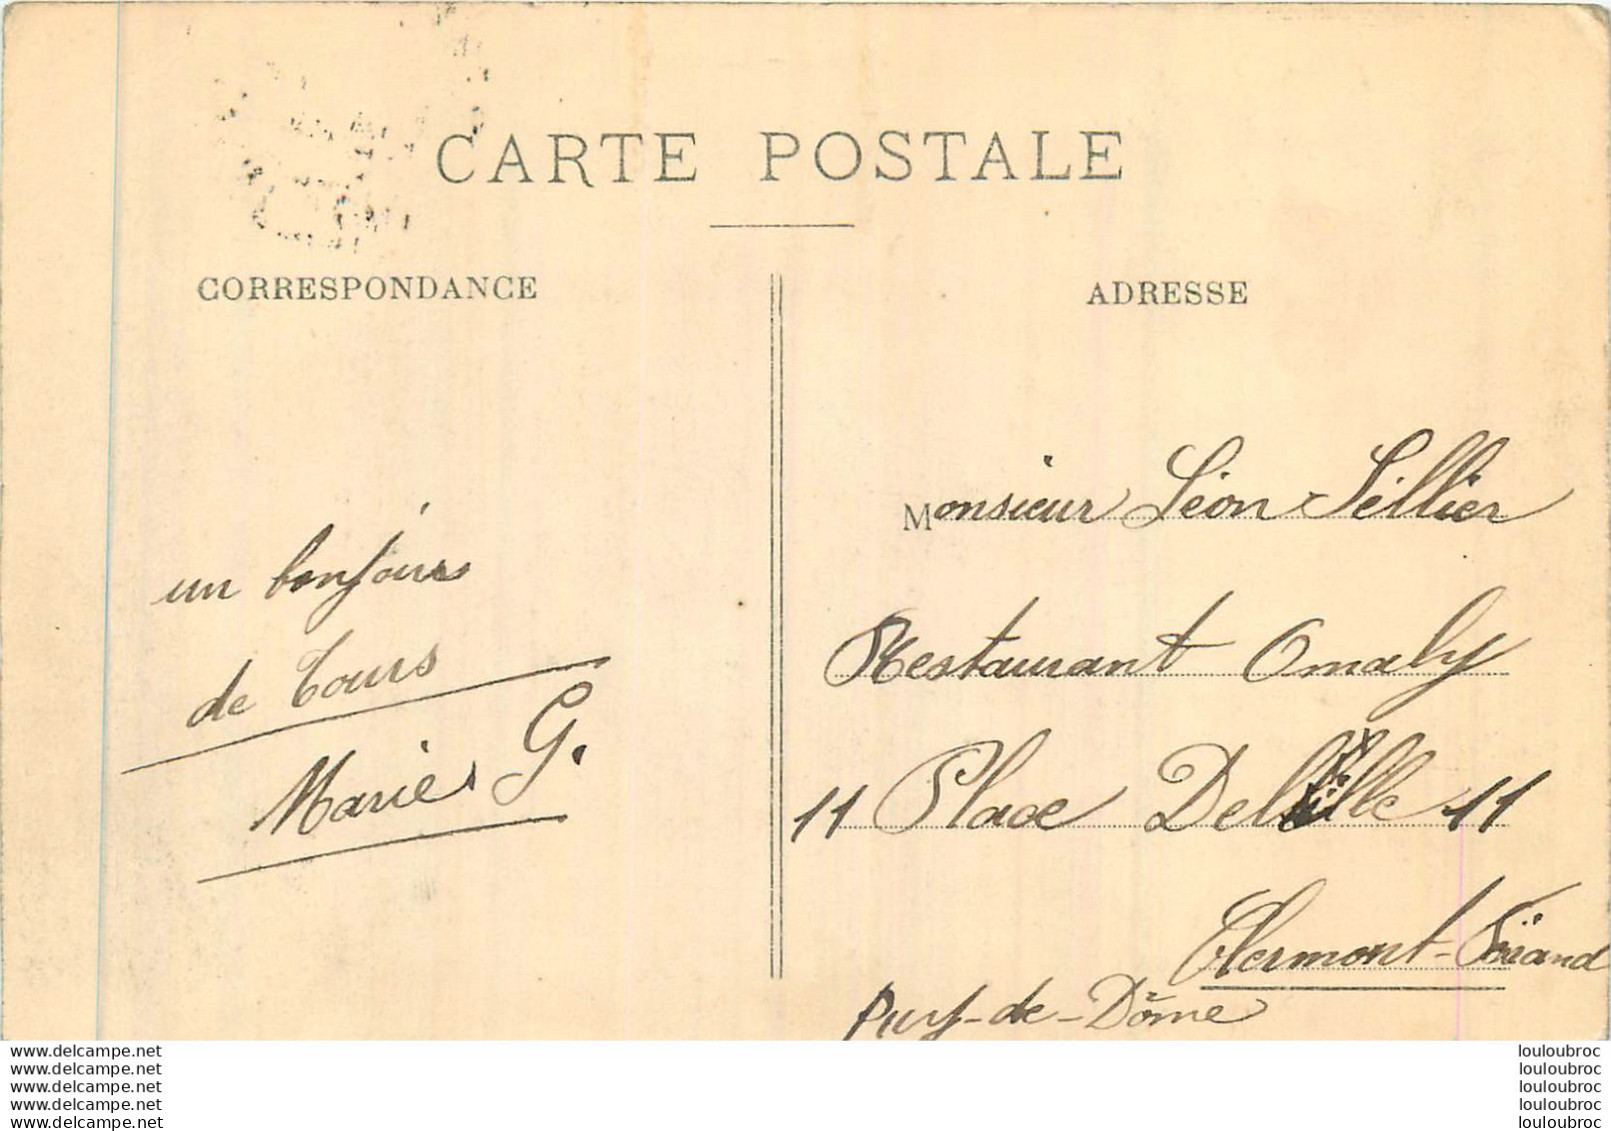 CARTE POSTALE
CORRESPONDANCE
ADRESSE
un bonjour
de Tours
Marie G.
Monsieur Léon Sellier
Restaurant Omaly
11 Place Delille 11
Clermont-Ferrand
Puy-de-Dôme
www.delcampe.net
www.delcampe.net
www.delcampe.net
www.delcampe.net
www.delcampe.net
louloubroc
louloubroc
louloubroc
louloubroc
louloubroc